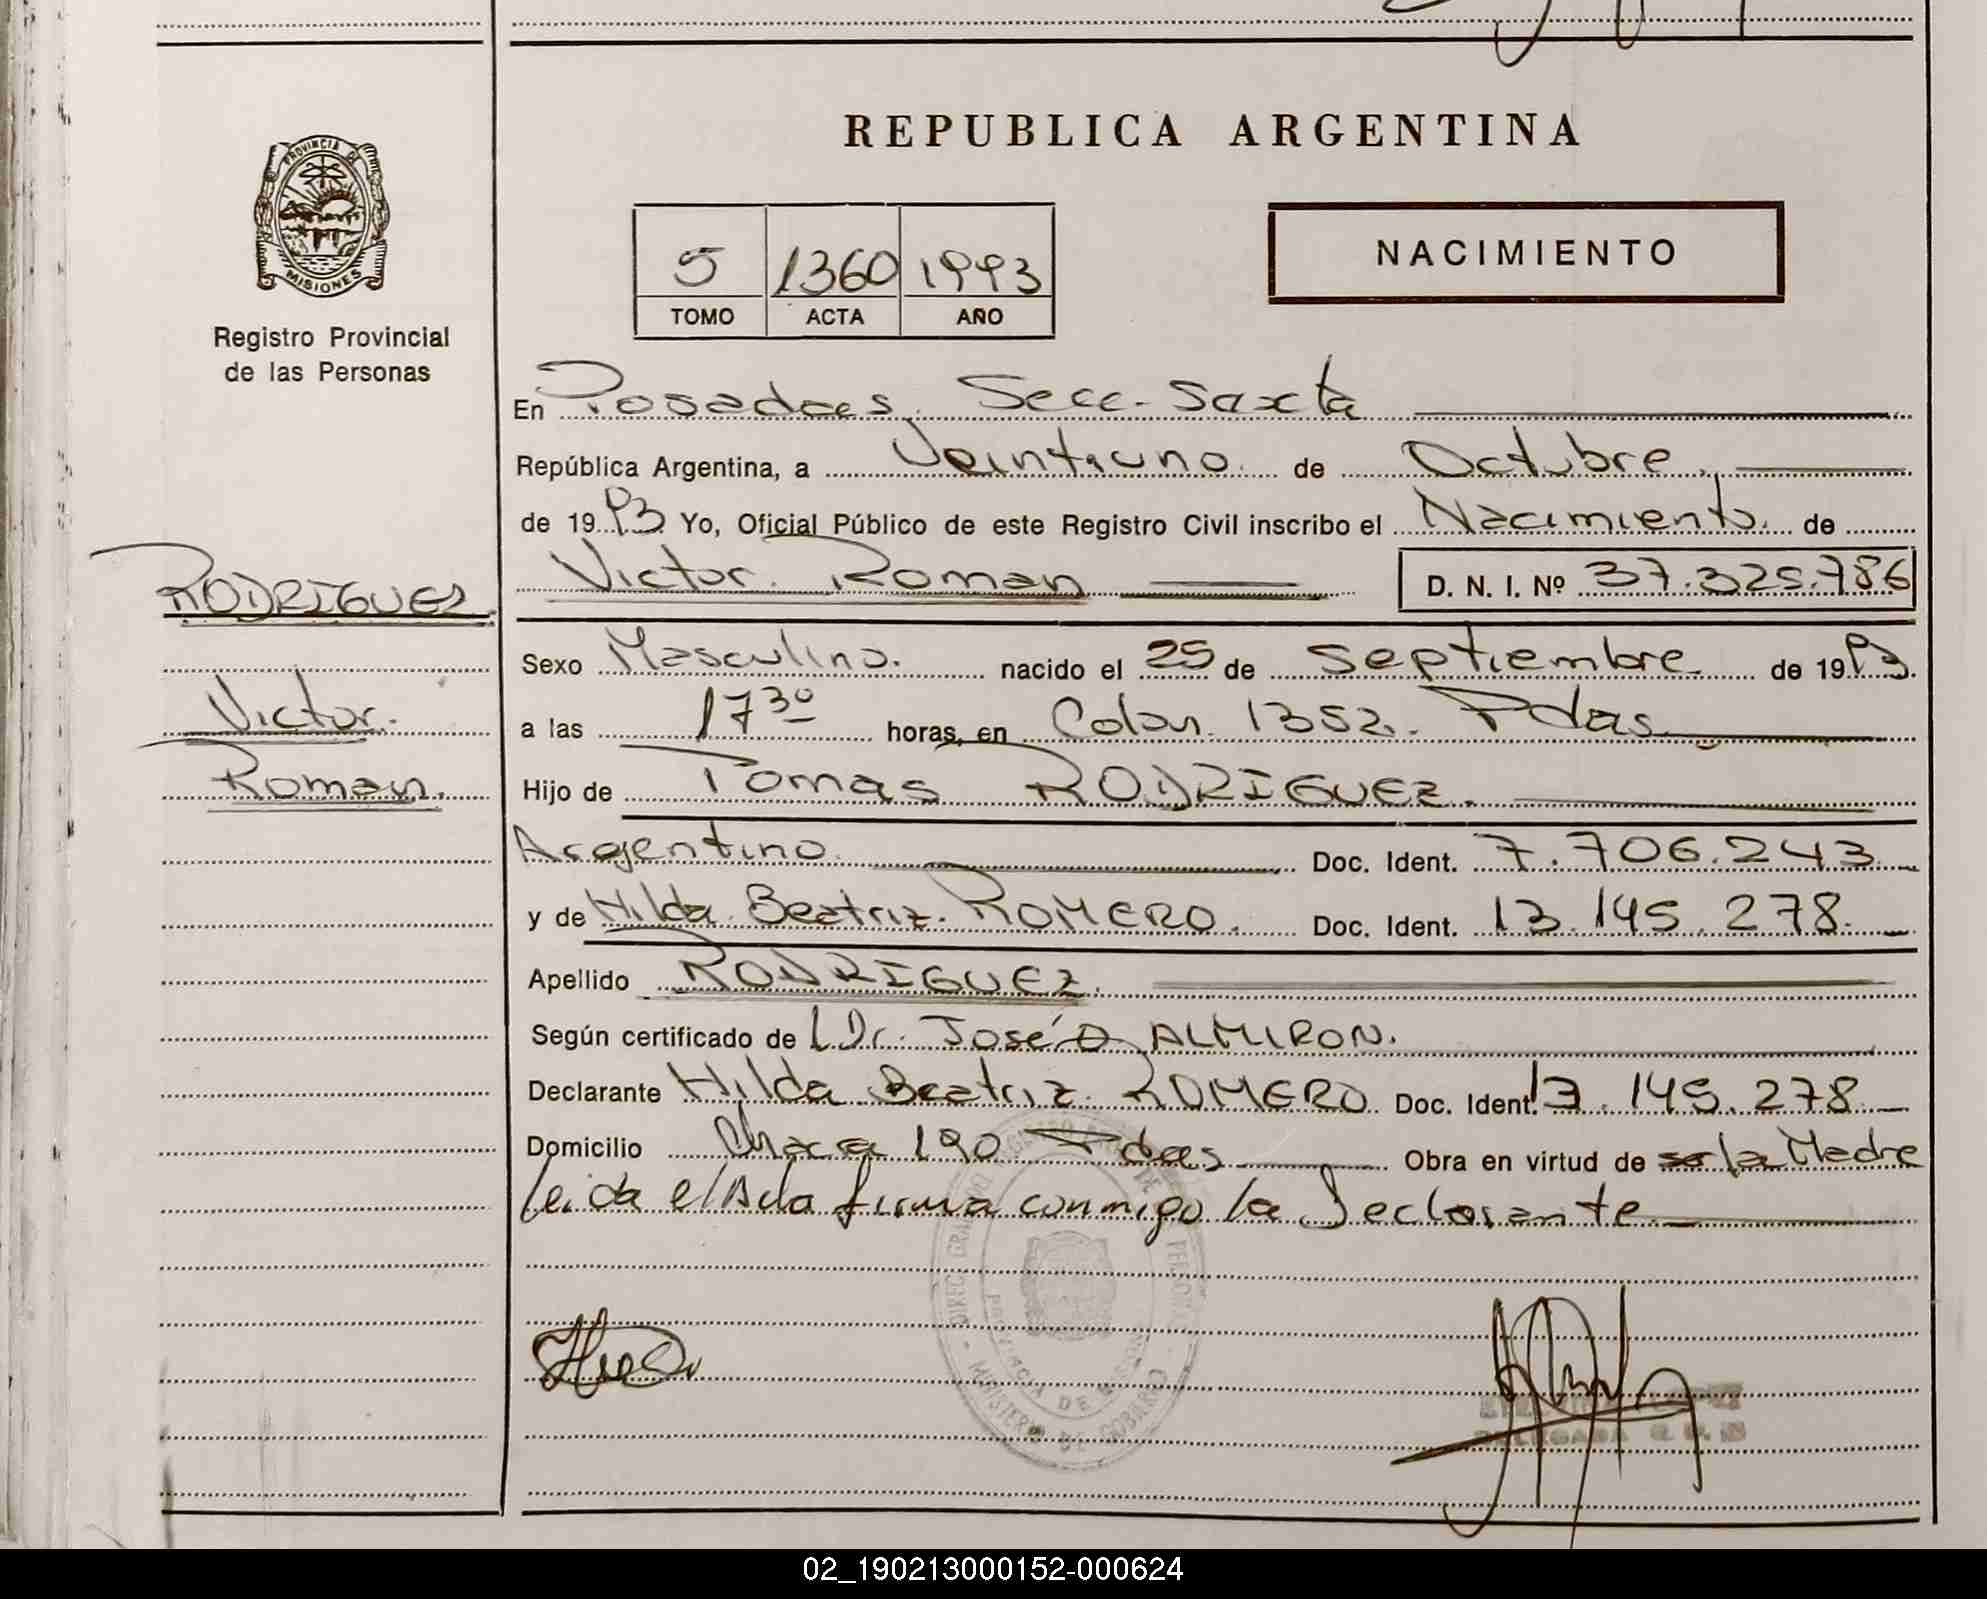 REPUBLICA ARGENTINA
PROVINCIA DE
MISIONES
Registro Provincial
de las Personas
5 1360 1993
TOMO ACTA AÑO
NACIMIENTO
En Posadas Secc. Sexta
República Argentina, a Veintiuno de Octubre
de 1993 Yo, Oficial Público de este Registro Civil inscribo el Nacimiento de
Victor Roman D. N. I. Nº 37.325.786
RODRIGUEZ
Victor
Roman
Sexo Masculino. nacido el 25 de Septiembre de 1993.
a las 17 30 horas, en Colon 1352. Pdas
Hijo de Tomas RODRIGUEZ.
Argentino Doc. Ident. 7.706.243
y de Hilda Beatriz ROMERO. Doc. Ident. 13.145.278.
Apellido RODRIGUEZ.
Según certificado de Dr. José ALMIRON.
Declarante Hilda Beatriz ROMERO Doc. Ident. 13.145.278
Domicilio Chacra 190 Pdas Obra en virtud de ser la Madre
leida el Acta firma conmigo la Declarante
MINISTERIO DE GOBIERNO
02_190213000152-000624